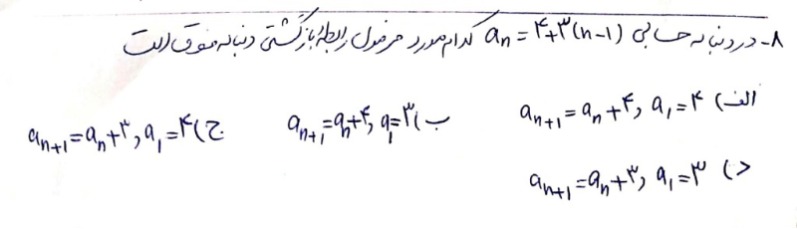 ۸- در دنباله حسابی aₙ = ۴+۳(n-1) کدام مورد فرمول رابطه بازگشتی دنباله فوق است
الف) aₙ₊₁ = aₙ + ۴ , a₁ = ۴ ب) aₙ₊₁ = aₙ + ۴ , a₁ = ۳ ج) aₙ₊₁ = aₙ + ۳ , a₁ = ۴
د) aₙ₊₁ = aₙ + ۳ , a₁ = ۳